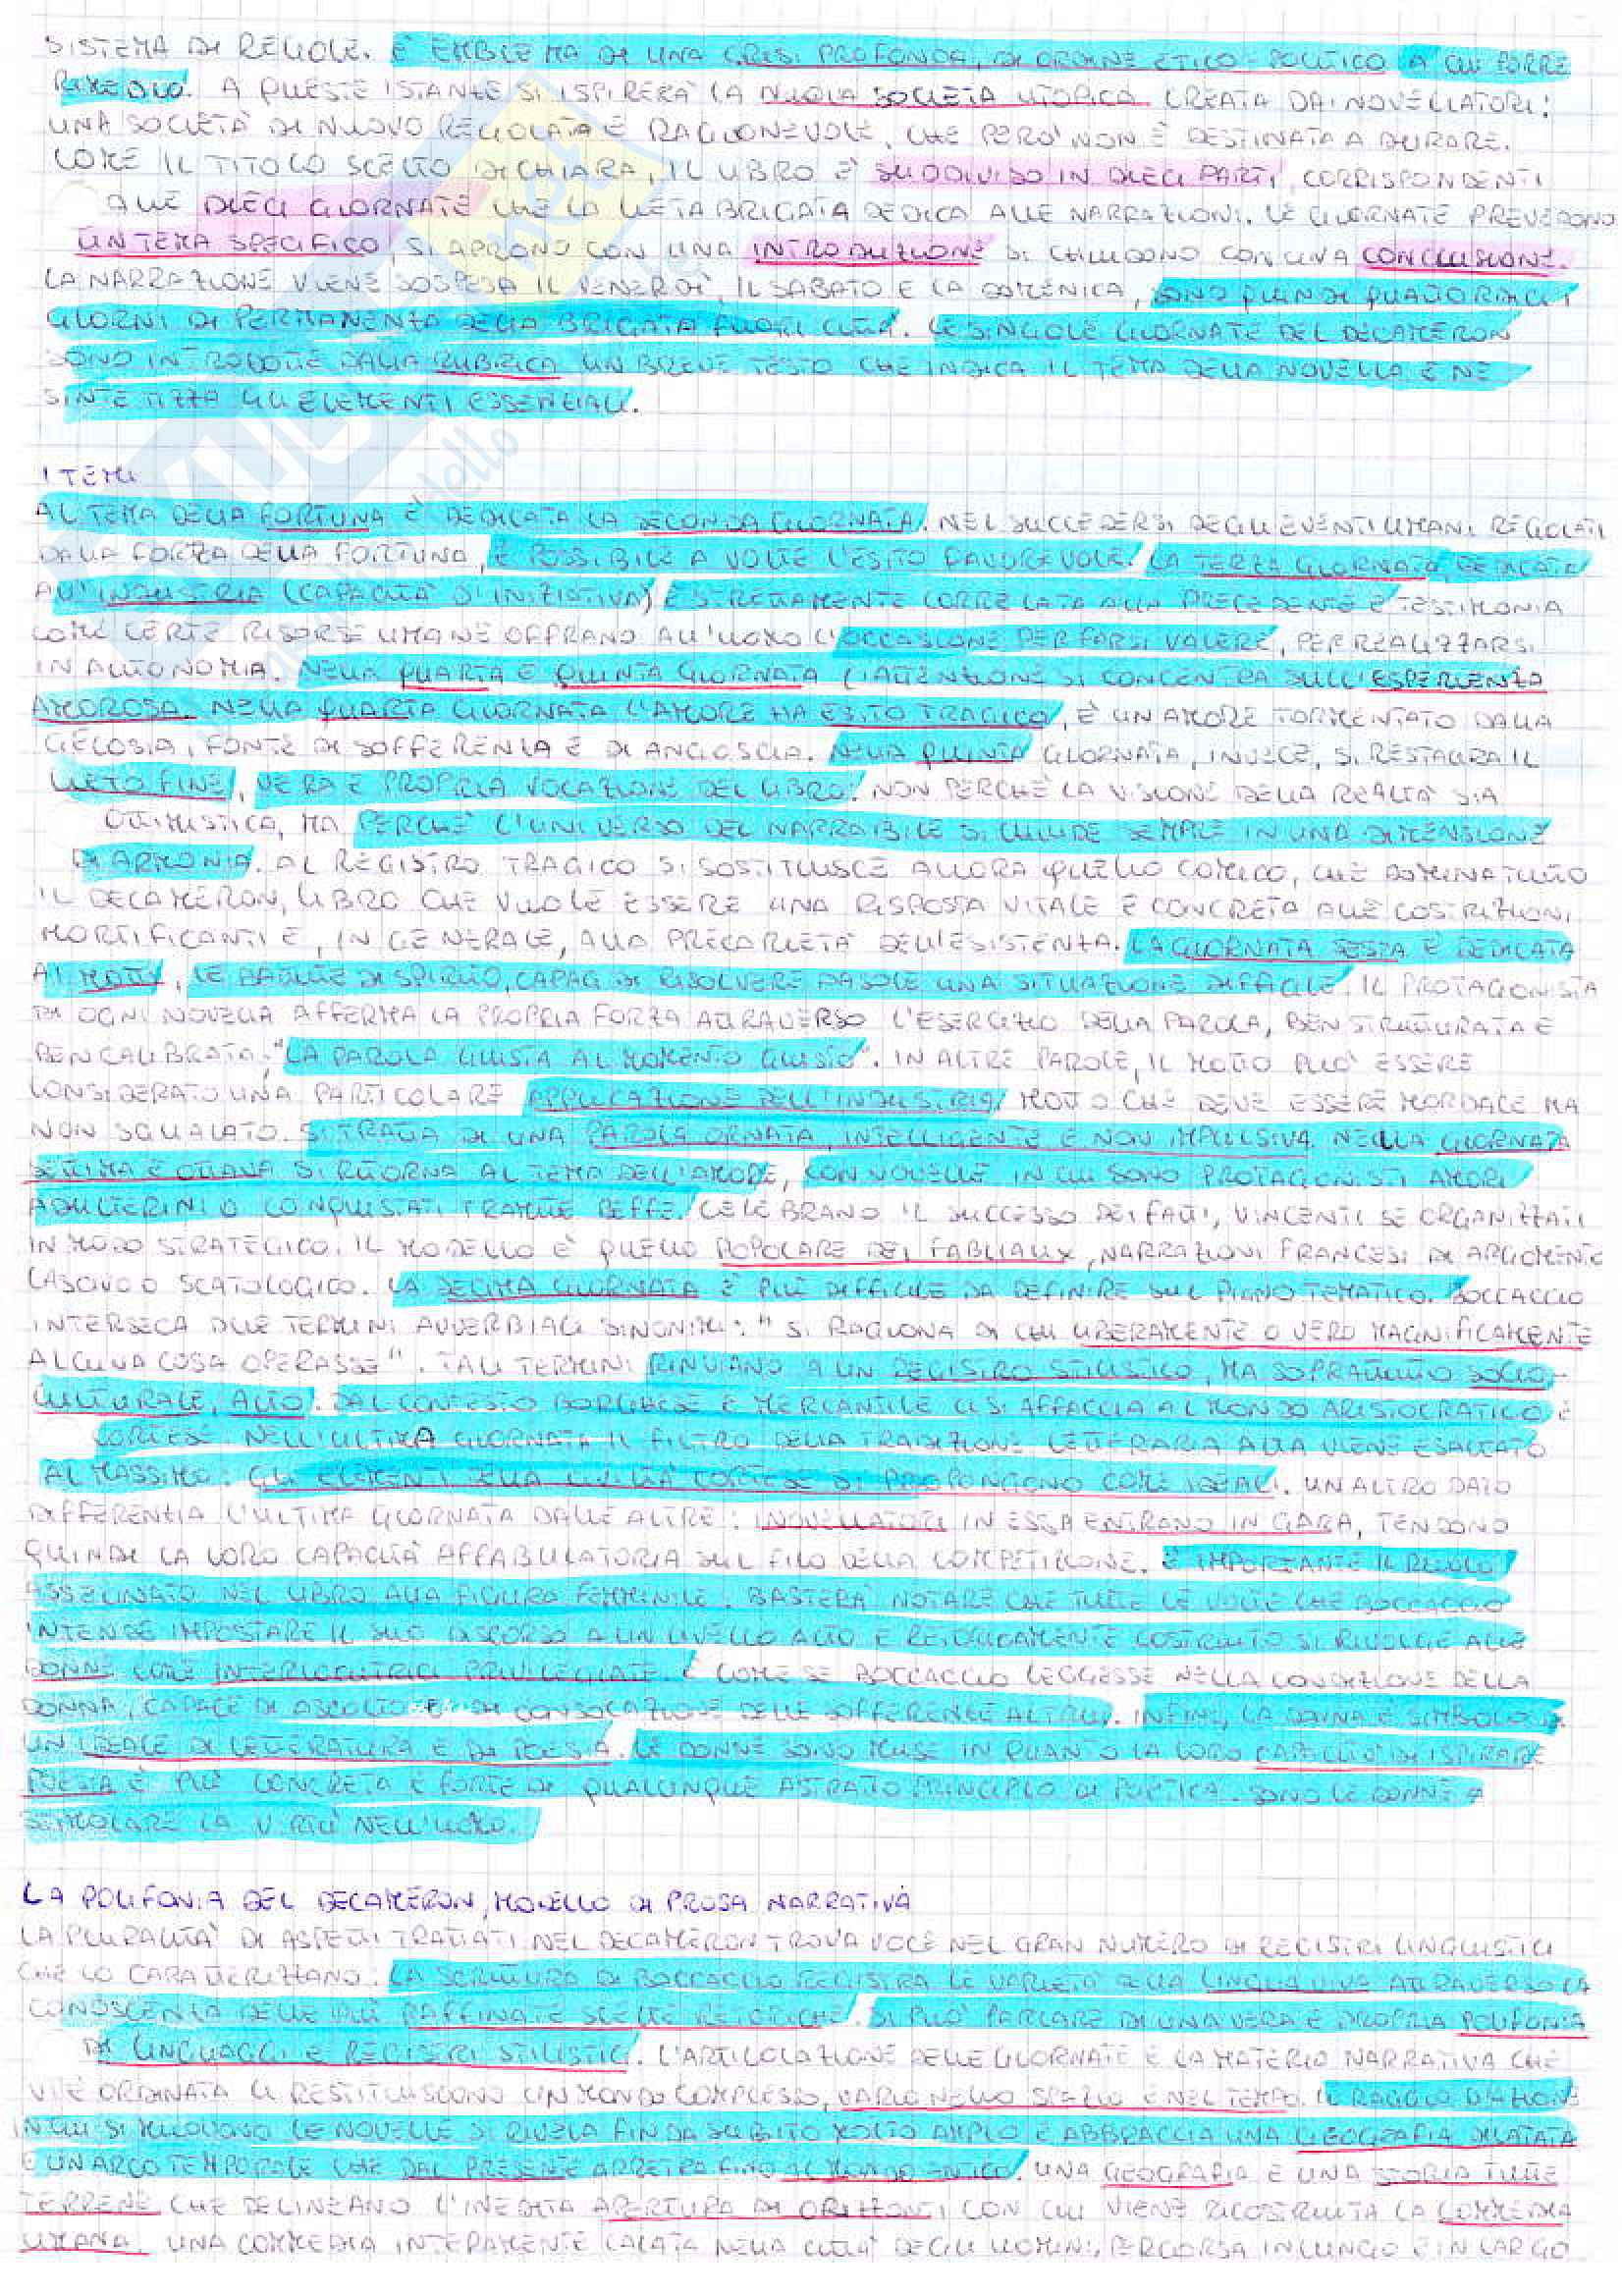 SISTEMA DI REGOLE. È EMBLEMA DI UNA CRISI PROFONDA, DI ORDINE ETICO-POLITICO A CUI PORRE
RIMEDIO. A QUESTE ISTANZE SI ISPIRERÀ LA NUOVA SOCIETÀ UTOPICA CREATA DAI NOVELLATORI:
UNA SOCIETÀ DI NUOVO REGOLATA E RAGIONEVOLE, CHE PERÒ NON È DESTINATA A DURARE.
COME IL TITOLO SCELTO DICHIARA, IL LIBRO È SUDDIVISO IN DIECI PARTI, CORRISPONDENTI
ALLE DIECI GIORNATE CHE LA LIETA BRIGATA DEDICA ALLE NARRAZIONI. LE GIORNATE PREVEDONO
UN TEMA SPECIFICO, SI APRONO CON UNA INTRODUZIONE SI CHIUDONO CON UNA CONCLUSIONE.
LA NARRAZIONE VIENE SOSPESA IL VENERDÌ, IL SABATO E LA DOMENICA, SONO QUINDI QUATTORDICI
GIORNI DI PERMANENZA DELLA BRIGATA FUORI CITTÀ. LE SINGOLE GIORNATE DEL DECAMERON
SONO INTRODOTTE DALLA RUBRICA UN BREVE TESTO CHE INDICA IL TEMA DELLA NOVELLA E NE
SINTETIZZA GLI ELEMENTI ESSENZIALI.
I TEMI
AL TEMA DELLA FORTUNA È DEDICATA LA SECONDA GIORNATA. NEL SUCCEDERSI DEGLI EVENTI UMANI REGOLATI
DALLA FORZA DELLA FORTUNA, È POSSIBILE A VOLTE L'ESITO FAVOREVOLE. LA TERZA GIORNATA DEDICATA
ALL'INDUSTRIA (CAPACITÀ D'INIZIATIVA) È STRETTAMENTE CORRELATA ALLA PRECEDENTE E TESTIMONIA
COME CERTE RISORSE UMANE OFFRANO ALL'UOMO L'OCCASIONE PER FARSI VALERE, PER REALIZZARSI
IN AUTONOMIA. NELLA QUARTA E QUINTA GIORNATA L'ATTENZIONE SI CONCENTRA SULL'ESPERIENZA
AMOROSA. NELLA QUARTA GIORNATA L'AMORE HA ESITO TRAGICO, È UN AMORE TORMENTATO DALLA
GELOSIA, FONTE DI SOFFERENZA E DI ANGOSCIA. NELLA QUINTA GIORNATA, INVECE, SI RESTAURA IL
LIETO FINE, VERA E PROPRIA VOCAZIONE DEL LIBRO: NON PERCHÈ LA VISIONE DELLA REALTÀ SIA
OTTIMISTICA, MA PERCHÈ L'UNIVERSO DEL NARRABILE SI CHIUDE SEMPRE IN UNA DIMENSIONE
DI ARMONIA. AL REGISTRO TRAGICO SI SOSTITUISCE ALLORA QUELLO COMICO, CHE DOMINA TUTTO
IL DECAMERON, LIBRO CHE VUOLE ESSERE UNA RISPOSTA VITALE E CONCRETA ALLE COSTRIZIONI
MORTIFICANTI E, IN GENERALE, ALLA PRECARIETÀ DELL'ESISTENZA. LA GIORNATA SESTA È DEDICATA
AI MOTTI, LE BATTUTE DI SPIRITO, CAPACI DI RISOLVERE DA SOLE UNA SITUAZIONE DIFFICILE. IL PROTAGONISTA
DI OGNI NOVELLA AFFERMA LA PROPRIA FORZA ATTRAVERSO L'ESERCIZIO DELLA PAROLA, BEN STRUTTURATA E
BEN CALIBRATA: "LA PAROLA GIUSTA AL MOMENTO GIUSTO". IN ALTRE PAROLE, IL MOTTO PUÒ ESSERE
CONSIDERATO UNA PARTICOLARE APPLICAZIONE DELL'INDUSTRIA: MOTTO CHE DEVE ESSERE MORDACE MA
NON SGUAIATO. SI TRATTA DI UNA PAROLA ORNATA, INTELLIGENTE E NON IMPULSIVA. NELLA GIORNATA
SETTIMA E OTTAVA SI RITORNA AL TEMA DELL'AMORE, CON NOVELLE IN CUI SONO PROTAGONISTI AMORI
ADULTERINI O CONQUISTATI TRAMITE BEFFE. CELEBRANO IL SUCCESSO DEI FATTI, VINCENTI SE ORGANIZZATI
IN MODO STRATEGICO. IL MODELLO È QUELLO POPOLARE DEI FABLIAUX, NARRAZIONI FRANCESI DI ARGOMENTO
LASCIVO O SCATOLOGICO. LA DECIMA GIORNATA È PIÙ DIFFICILE DA DEFINIRE SUL PIANO TEMATICO. BOCCACCIO
INTERSECA DUE TERMINI AVVERBIALI SINONIMI: "SI RAGIONA DI CHI LIBERAMENTE O VERO MAGNIFICAMENTE
ALCUNA COSA OPERASSE". TALI TERMINI RINVIANO A UN REGISTRO STILISTICO, MA SOPRATTUTTO SOCIO-
CULTURALE, ALTO. DAL CONTESTO BORGHESE E MERCANTILE CI SI AFFACCIA AL MONDO ARISTOCRATICO E
CORTESE. NELL'ULTIMA GIORNATA IL FILTRO DELLA TRADIZIONE LETTERARIA ALTA VIENE ESALTATO
AL MASSIMO: GLI ELEMENTI DELLA CIVILTÀ CORTESE SI PROPONGONO COME IDEALI. UN ALTRO DATO
DIFFERENZIA L'ULTIMA GIORNATA DALLE ALTRE: I NOVELLATORI IN ESSA ENTRANO IN GARA, TENDONO
QUINDI LA LORO CAPACITÀ AFFABULATORIA SUL FILO DELLA COMPETIZIONE. È IMPORTANTE IL RUOLO
ASSEGNATO NEL LIBRO ALLA FIGURA FEMMINILE. BASTERÀ NOTARE CHE TUTTE LE VOLTE CHE BOCCACCIO
INTENDE IMPOSTARE IL SUO DISCORSO A UN LIVELLO ALTO E RETORICAMENTE COSTRUITO SI RIVOLGE ALLE
DONNE COME INTERLOCUTRICI PRIVILEGIATE. È COME SE BOCCACCIO LEGGESSE NELLA CONDIZIONE DELLA
DONNA, CAPACE DI ASCOLTO E DI CONSOLAZIONE DELLE SOFFERENZE ALTRUI. INFINE, LA DONNA È SIMBOLO DI
UN IDEALE DI LETTERATURA E DI POESIA. LE DONNE SONO MUSE IN QUANTO LA LORO CAPACITÀ DI ISPIRARE
POESIA È PIÙ CONCRETA E FORTE DI QUALUNQUE ASTRATTO PRINCIPIO DI POETICA. SONO LE DONNE A
STIMOLARE LA VIRTÙ NELL'UOMO.
LA POLIFONIA DEL DECAMERON, MODELLO DI PROSA NARRATIVA
LA PLURALITÀ DI ASPETTI TRATTATI NEL DECAMERON TROVA VOCE NEL GRAN NUMERO DI REGISTRI LINGUISTICI
CHE LO CARATTERIZZANO. LA SCRITTURA DI BOCCACCIO REGISTRA LE VARIETÀ DELLA LINGUA VIVA ATTRAVERSO LA
CONOSCENZA DELLE PIÙ RAFFINATE SCELTE RETORICHE. SI PUÒ PARLARE DI UNA VERA E PROPRIA POLIFONIA
DI LINGUAGGI E REGISTRI STILISTICI. L'ARTICOLAZIONE DELLE GIORNATE E LA MATERIA NARRATIVA CHE
VI È ORDINATA CI RESTITUISCONO UN MONDO COMPLESSO, VARIO NELLO SPAZIO E NEL TEMPO. IL RAGGIO D'AZIONE
IN CUI SI MUOVONO LE NOVELLE SI RIVELA FIN DA SUBITO MOLTO AMPIO E ABBRACCIA UNA GEOGRAFIA DILATATA
E UN ARCO TEMPORALE CHE DAL PRESENTE ARRETRA FINO AL MONDO ANTICO. UNA GEOGRAFIA E UNA STORIA TUTTE
TERRENE CHE DELINEANO L'INEDITA APERTURA DI ORIZZONTI CON CUI VIENE RICOSTRUITA LA COMMEDIA
UMANA. UNA COMMEDIA INTERAMENTE CALATA NELLA CITTÀ DEGLI UOMINI, PERCORSA IN LUNGO E IN LARGO